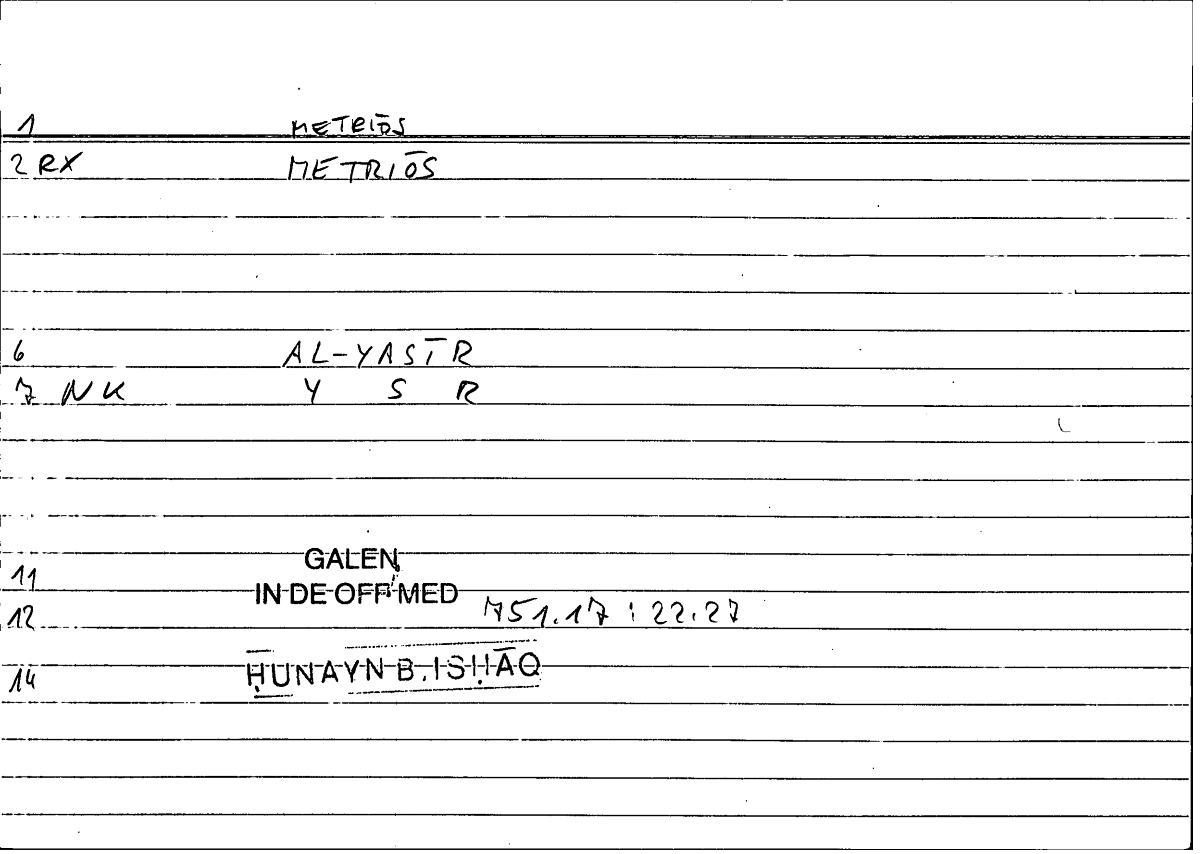 1 METRIŌS
2 RX METRIŌS
6 AL-YASĪR
7 NK Y S R
11 GALEN
IN DE OFF MED
12 751.17 : 22.27
14 ḤUNAYN B. ISḤĀQ